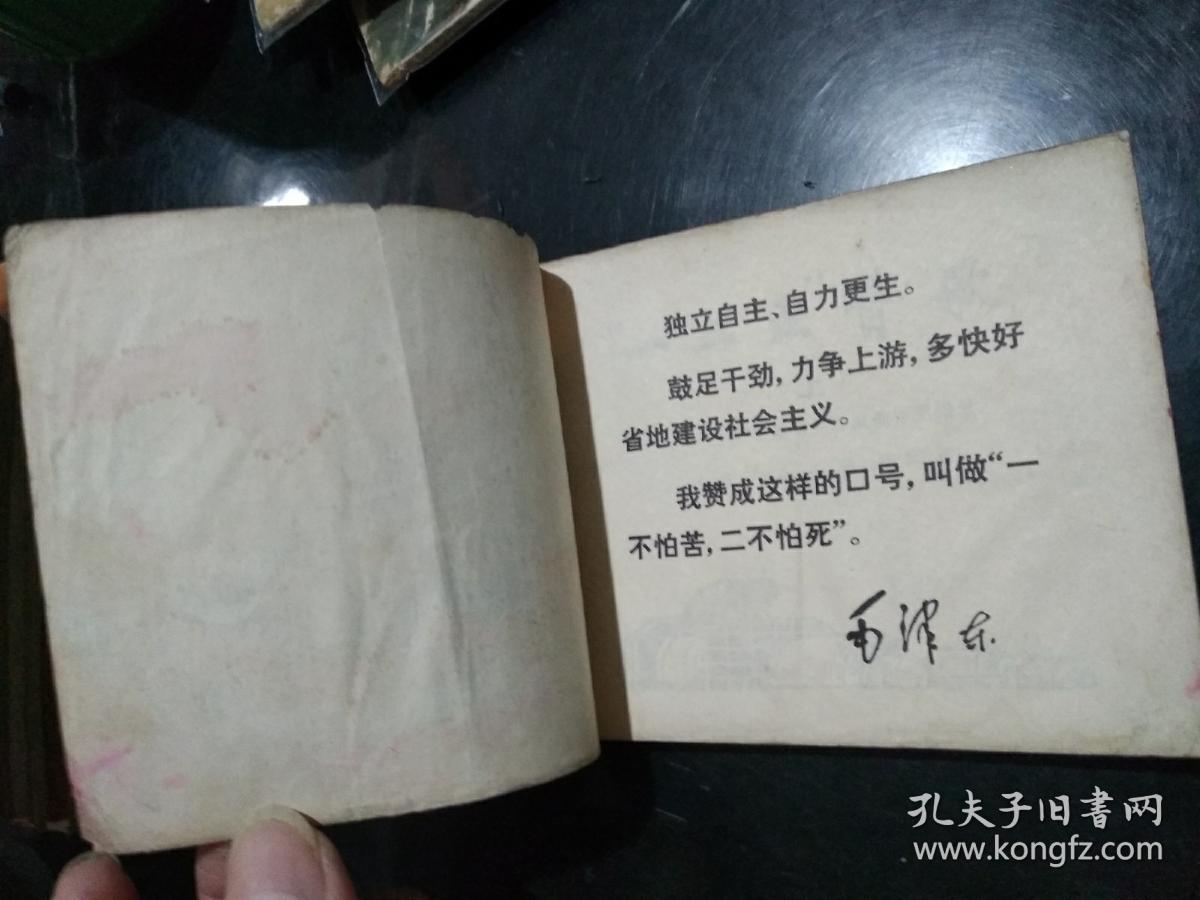 独立自主、自力更生。
鼓足干劲，力争上游，多快好
省地建设社会主义。
我赞成这样的口号，叫做“一
不怕苦，二不怕死”。
毛泽东
孔夫子旧書网
www.kongfz.com